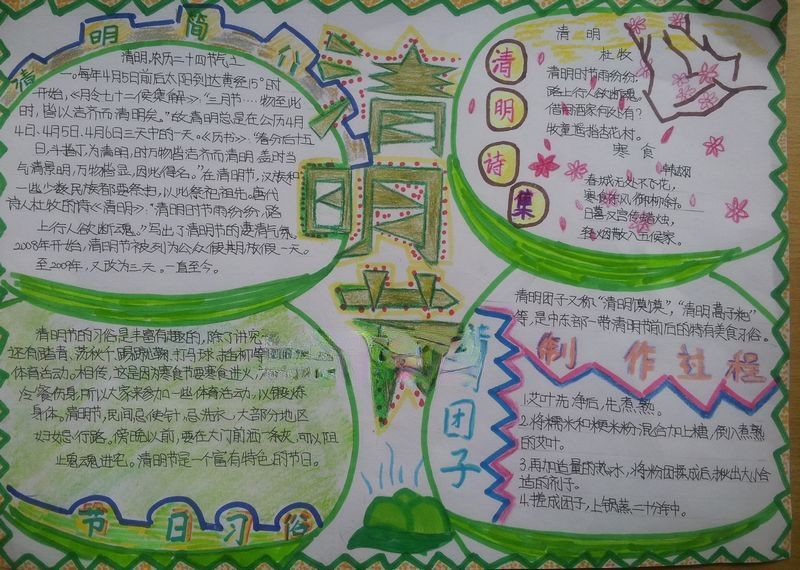 清明简介
清明,农历二十四节气之
一。每年4月5日前后太阳到达黄经15°时
开始,《月令七十二候集解》:“三月节……物至此
时,皆以洁齐而清明矣。”故清明总是在公历4月
4日、4月5日、4月6日三天中的一天。《历书》:“春分后十五
日,斗指丁,为清明,时万物皆洁齐而清明,盖时当
气清景明,万物皆显,因此得名。”在清明节,汉族和
一些少数民族都要祭扫,以此祭祀祖先。唐代
诗人杜牧的诗《清明》:“清明时节雨纷纷,路
上行人欲断魂。”写出了清明节的凄清气氛。
2008年开始,清明节被列为公众假期放假一天。
至2009年,又改为三天。一直至今。
清明节
清明诗集
清明
杜牧
清明时节雨纷纷,
路上行人欲断魂。
借问酒家何处有?
牧童遥指杏花村。
寒食
韩翃
春城无处不飞花,
寒食东风御柳斜。
日暮汉宫传蜡烛,
轻烟散入五侯家。
清明节的习俗是丰富有趣的,除了讲究
还有踏青、荡秋千、踢蹴鞠、打马球、插柳等
体育活动。相传,这是因为寒食节要寒食进火,
冷餐伤身,所以大家来参加一些体育活动,以锻炼
身体。清明节,民间忌使针,忌洗衣,大部分地区
妇女忌行路。傍晚以前,要在大门前洒一条灰,可以阻
止鬼魂进宅。清明节是一个富有特色的节日。
节日习俗
清明团子又称“清明馍馍”,“清明蒿子粑”
等,是中东部一带清明节前后的特有美食习俗。
团子
制作过程
1.艾叶洗净后,先煮熟。
2.将糯米和粳米粉混合加上糖,倒入煮熟
的艾叶。
3.再加适量的热水,将粉团揉成后,揪出大小合
适的剂子。
4.搓成团子,上锅蒸二十分钟。